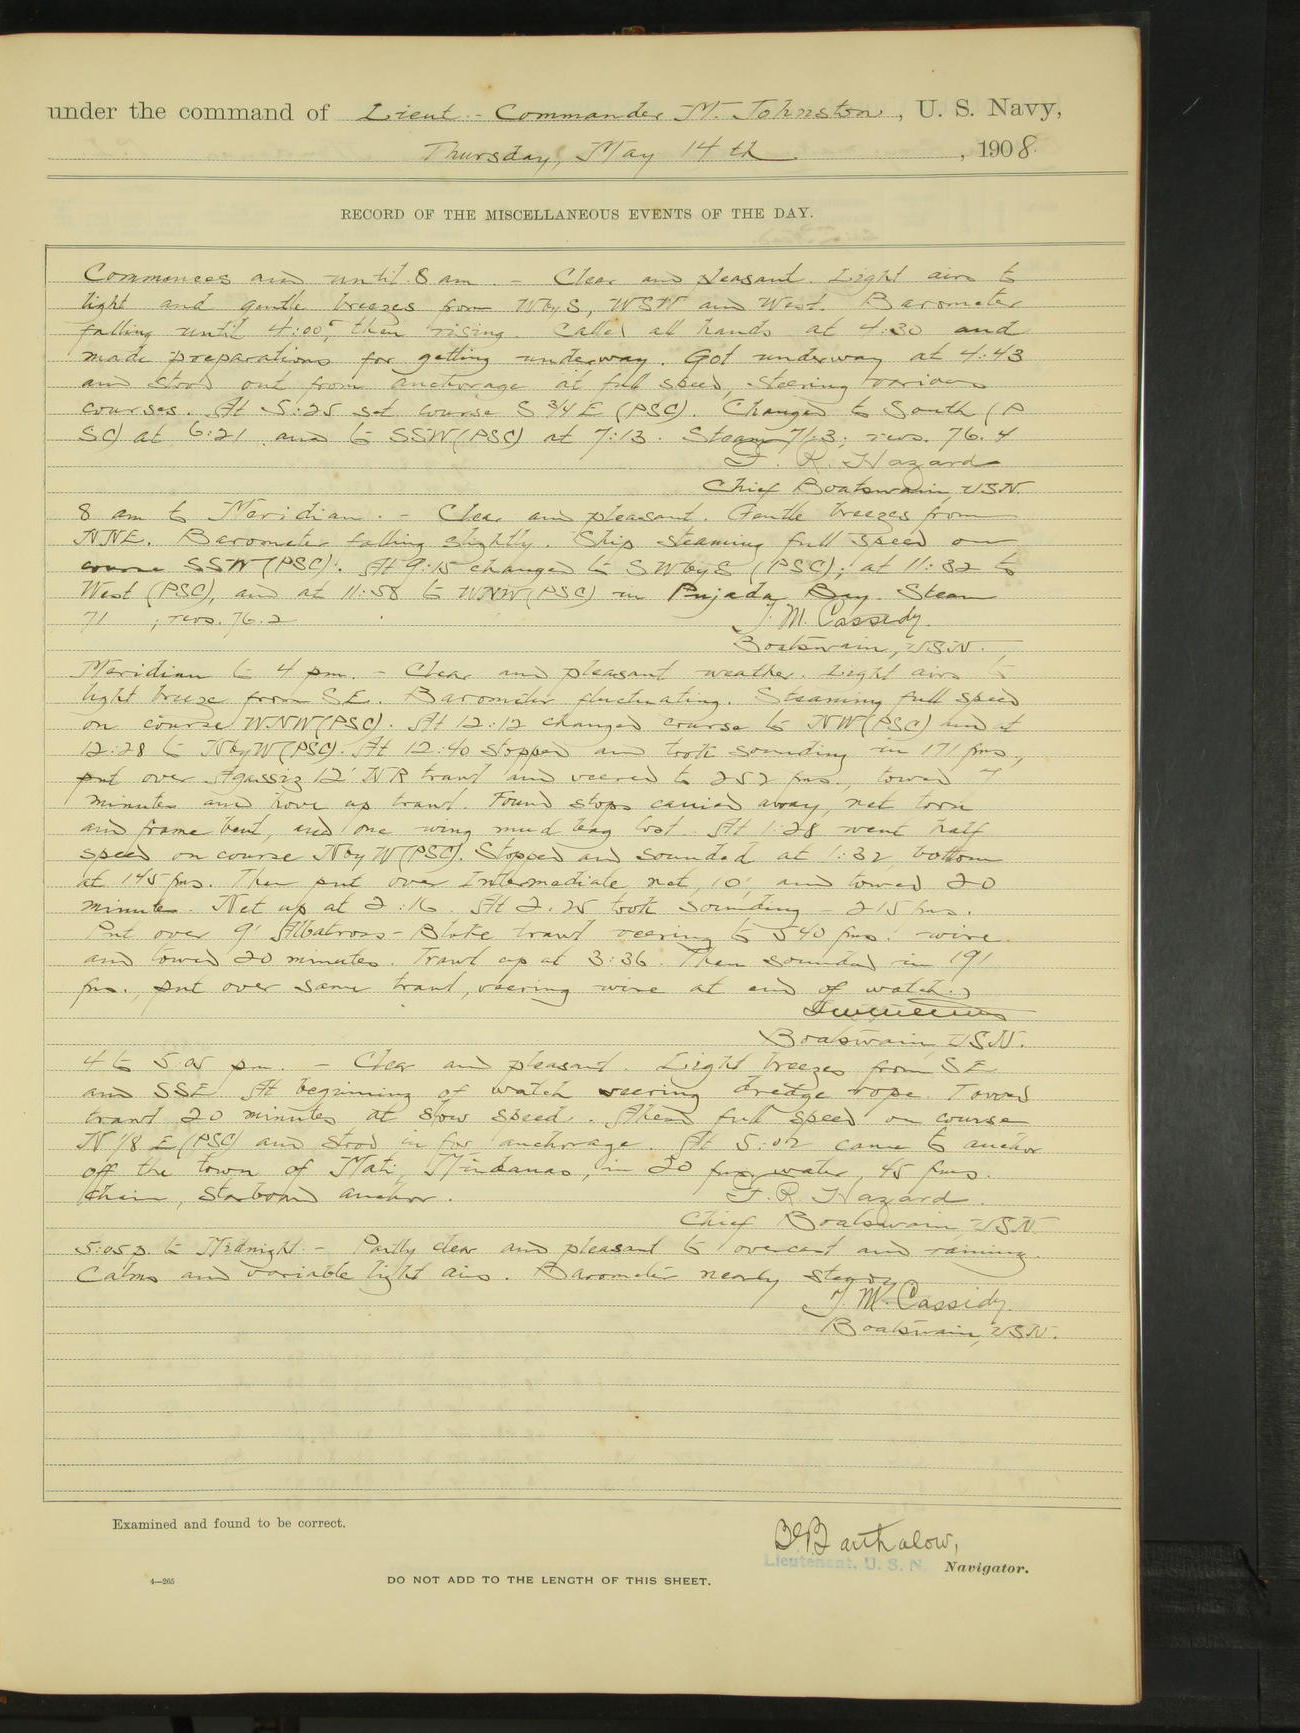 under the command of Lieut.-Commander M. Johnston, U. S. Navy,
Thursday, May 14th, 1908.
RECORD OF THE MISCELLANEOUS EVENTS OF THE DAY.
Commences and until 8 am. - Clear and pleasant. Light airs to
light and gentle breezes from WbyS, WSW and West. Barometer
falling until 4:00, then rising. Called all hands at 4:30 and
made preparations for getting underway. Got underway at 4:43
and stood out from anchorage at full speed, steering various
courses. At 5:25 set course S 3/4 E (PSC). Changed to South (P
SC) at 6:21 and to SSW (PSC) at 7:13. Steam 713; revs. 76.4
F. R. Hazard
Chief Boatswain, USN.
8 am to Meridian. - Clear and pleasant. Gentle breezes from
NNE. Barometer falling slightly. Ship steaming full speed on
course SSW (PSC). At 9:15 changed to SWbyS (PSC); at 11:32 to
West (PSC), and at 11:58 to WNW (PSC) in Pujada Bay. Steam
71 ; revs. 76.2
J. M. Cassidy.
Boatswain, USN.
Meridian to 4 pm. - Clear and pleasant weather. Light airs to
light breeze from SE. Barometer fluctuating. Steaming full speed
on course WNW (PSC). At 12:12 changed course to NW (PSC) and at
12:28 to NbyW (PSC). At 12:40 stopped and took sounding in 171 fms.,
put over Agassiz 12' NR trawl and veered to 252 fms., towed 7
minutes and hove up trawl. Found stops carried away, net torn
and frame bent, and one wing mud bag lost. At 1:28 went half
speed on course NbyW (PSC). Stopped and sounded at 1:32, bottom
at 145 fms. Then put over Intermediate net, 10', and towed 20
minutes. Net up at 2:16. At 2.25 took sounding - 215 fms.
Put over 9' Albatross-Blake trawl veering to 540 fms. wire
and towed 20 minutes. Trawl up at 3:36. Then sounded in 191
fms., put over same trawl, veering wire at end of watch.
Boatswain, USN.
4 to 5:05 pm. - Clear and pleasant. Light breezes from SE
and SSE. At beginning of watch veering dredge rope. Towed
trawl 20 minutes at slow speed. Ahead full speed on course
N 1/8 E (PSC) and stood in for anchorage. At 5:02 came to anchor
off the town of Mati, Mindanao, in 20 fms. water, 45 fms.
chain, starboard anchor.
F. R. Hazard.
Chief Boatswain, USN.
5:05 p. to Midnight - Partly clear and pleasant to overcast and raining.
Calms and variable light airs. Barometer nearly steady.
J. M. Cassidy.
Boatswain, USN.
Examined and found to be correct.
Barthalow,
Lieutenant, U. S. N. Navigator.
4—265
DO NOT ADD TO THE LENGTH OF THIS SHEET.